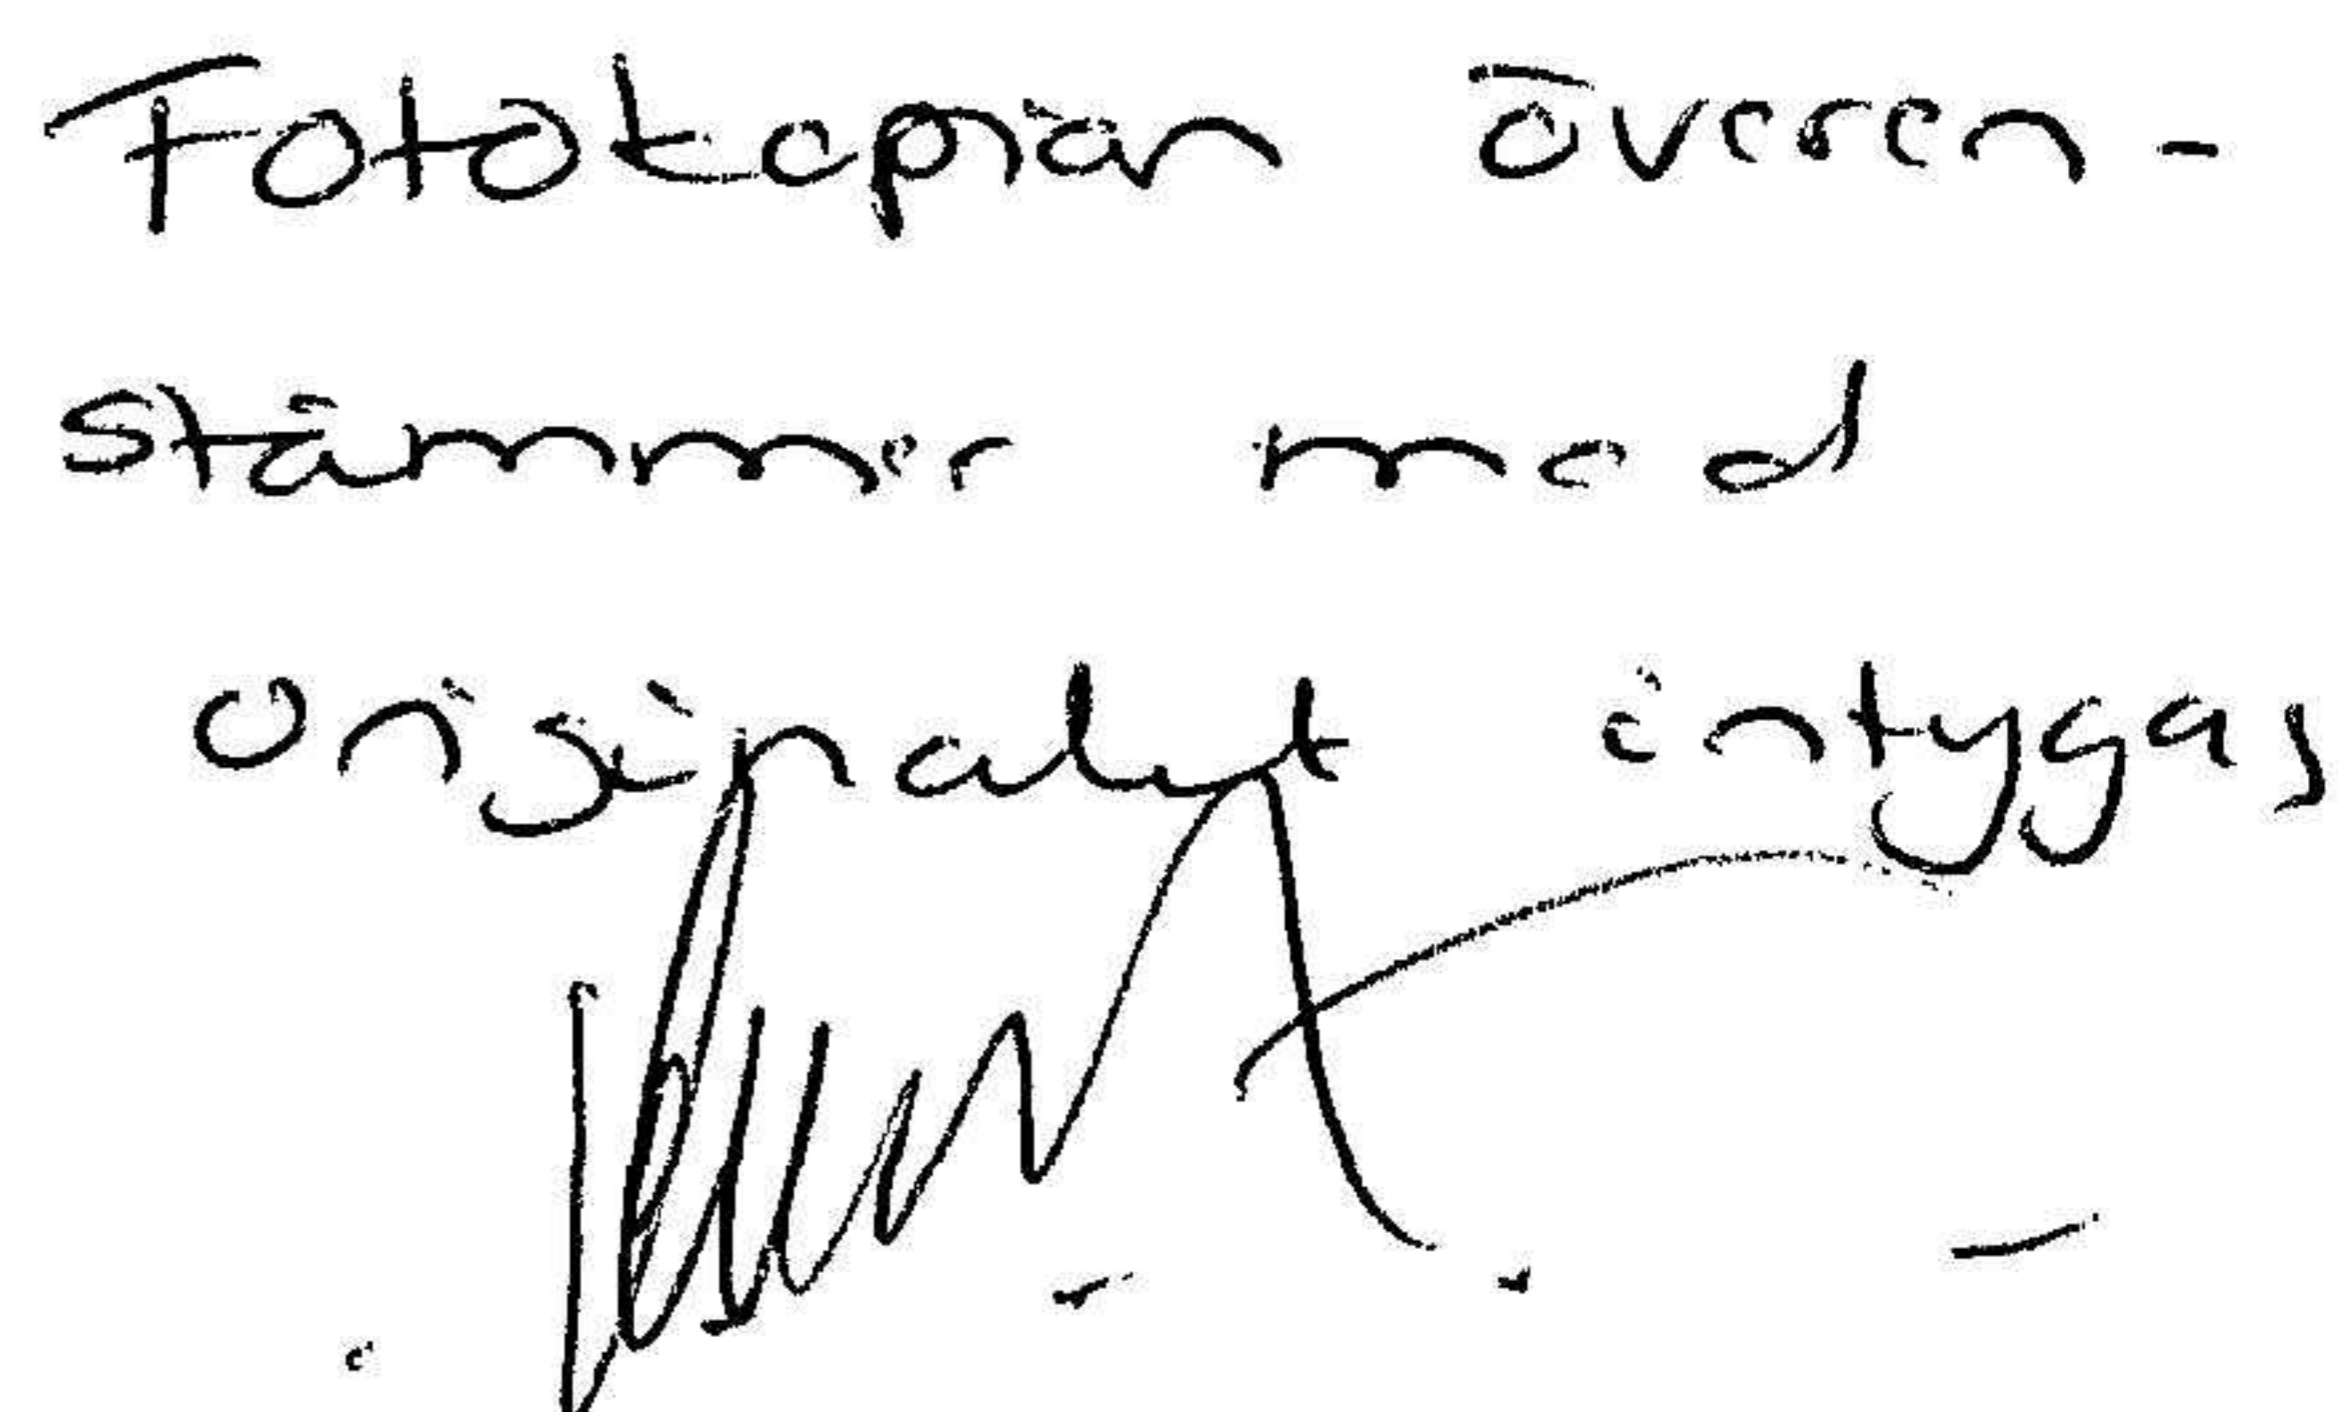 Fotokopian överen-
stämmer med
originalet intygas